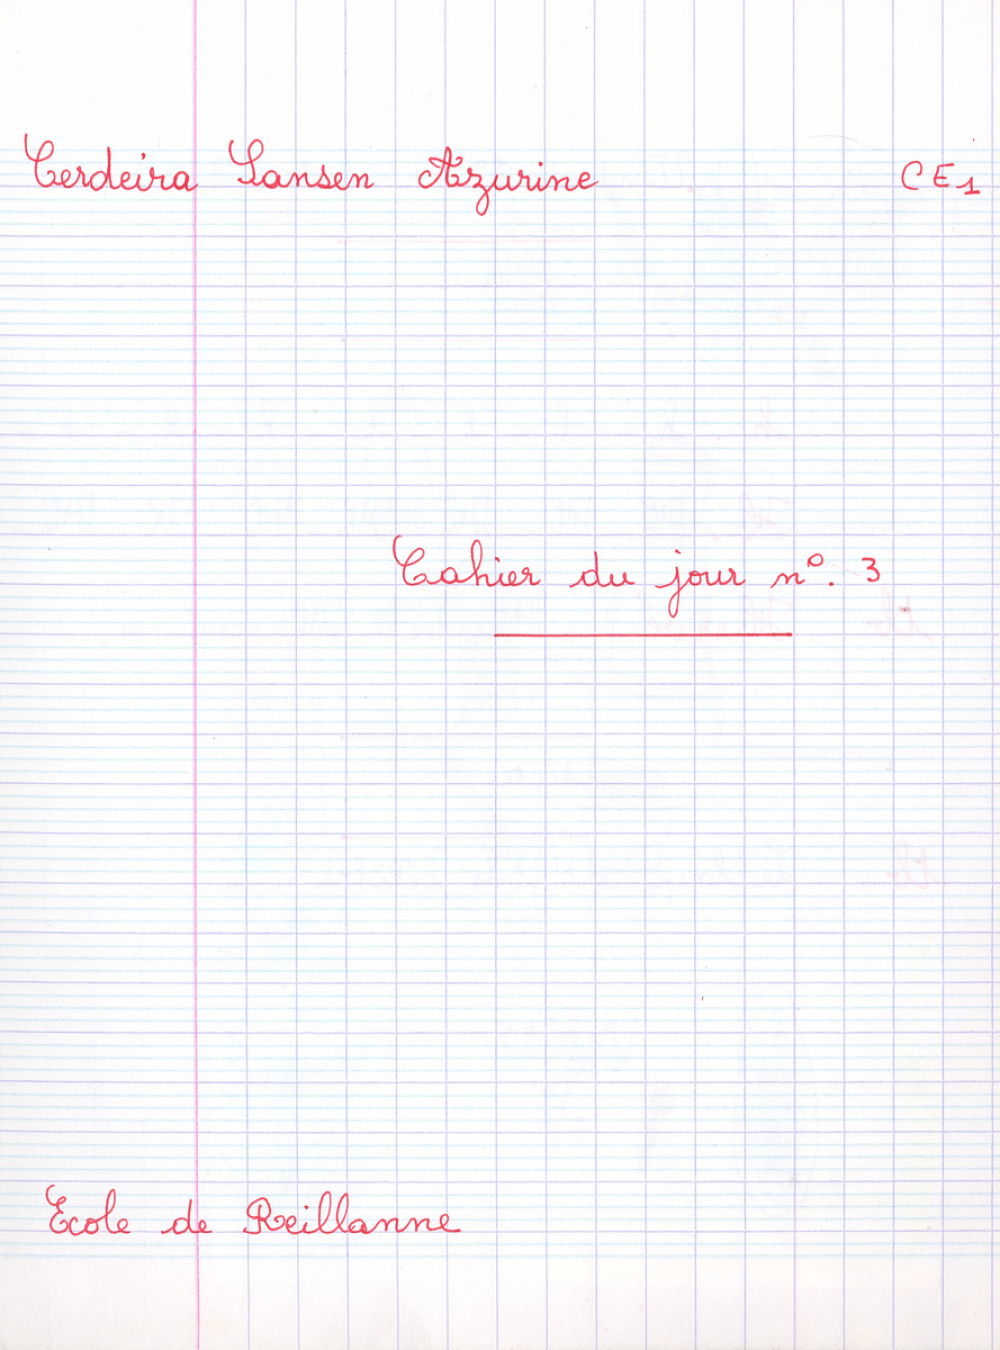 Cerdeira Sansen Azurine CE1
Cahier du jour n°. 3
Ecole de Reillanne